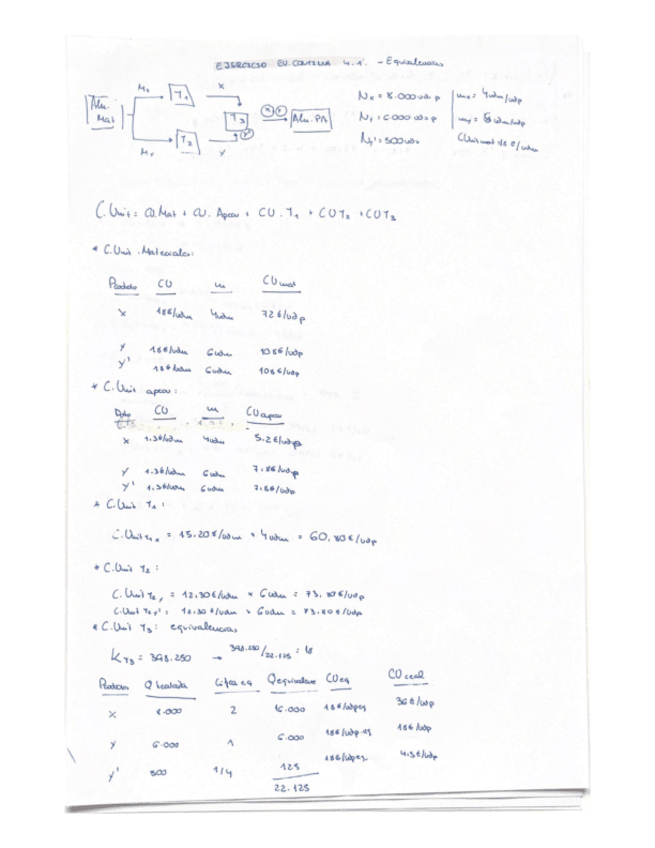 EJERCICIO EV. CONTINUA 4.1. - Equivalencias
Alm. Mat
Mx
T1
X
T3
X Y
Alm. PA
My
T2
Y
Y'
Nx = 8.000 udp
Ny = 6.000 udp
Ny' = 500 udp
mx = 4udm/udp
my = 6udm/udp
CUnit mat 18 €/udm
C.Unit = CU.Mat + CU. Aprov + CU. T1 + CUT2 + CUT3
* C.Unit. Materiales:
Producto CU m CU mat
X 18€/udm 4udm 72€/udp
Y 18€/udm 6udm 108€/udp
Y' 18€/udm 6udm 108€/udp
* C.Unit aprov:
CU m CU aprov
X 1.3€/udm 4udm 5.2€/udp
Y 1.3€/udm 6udm 7.8€/udp
Y' 1.3€/udm 6udm 7.8€/udp
* C.Unit T1:
C.Unit T1x = 15.20€/udm * 4udm = 60,80€/udp
* C.Unit T2:
C.Unit T2y = 12,30€/udm * 6udm = 73,80€/udp
C.Unit T2y' = 12,30€/udm * 6udm = 73,80€/udp
* C.Unit T3: equivalencias
KT3 = 398.250 → 398.250/22.125 = 18
Producto Q tratada Cifra eq Q equivalente CUeq CU real
X 8.000 2 16.000 18€/udpeq 36€/udp
Y 6.000 1 6.000 18€/udp.eq 18€/udp
Y' 500 1/4 125 18€/udpeq 4,5€/udp
22.125